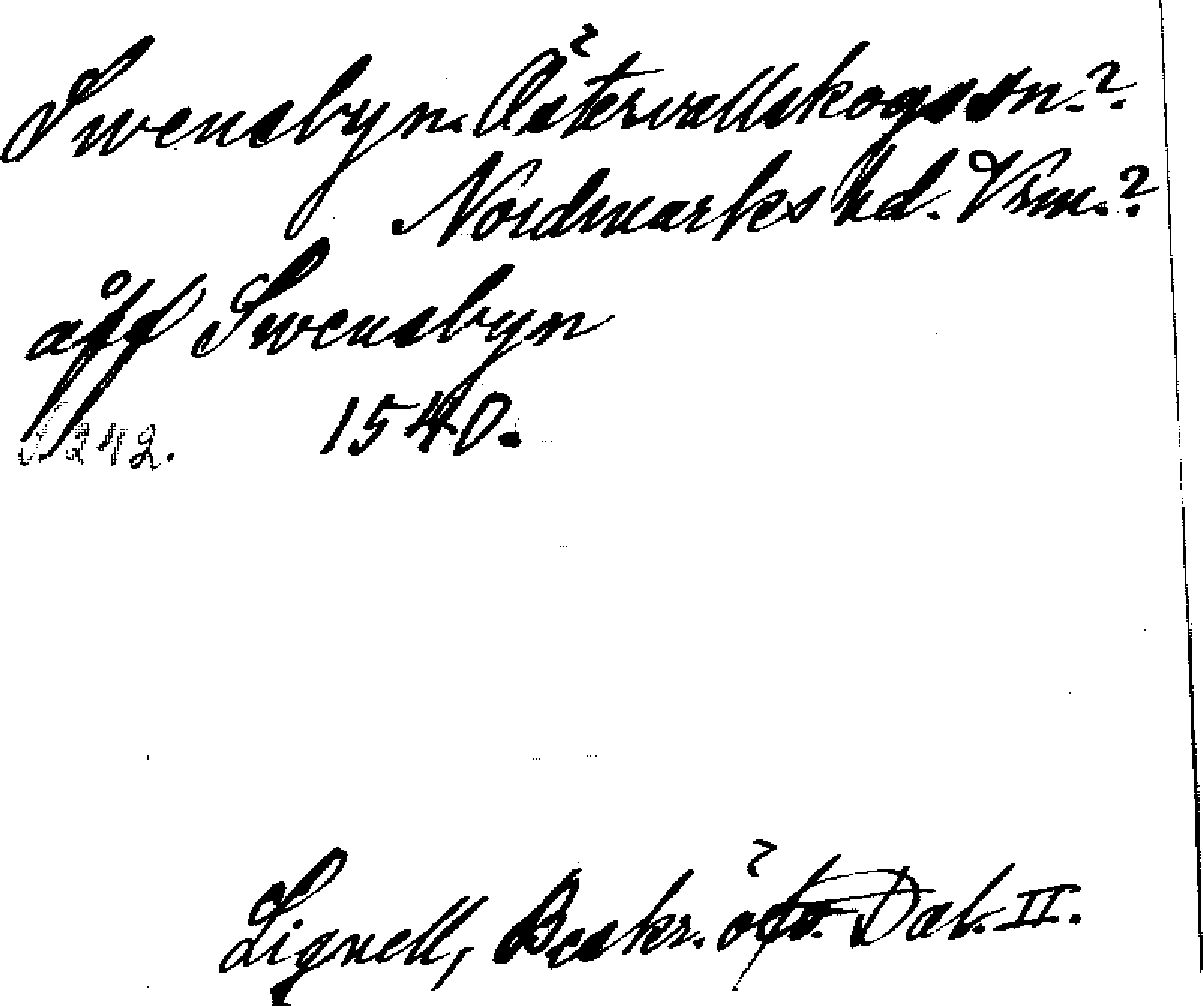 Swensbyn. Östervallskogs sn.?
Nordmarks hd. Vrm.?
åff Swensbyn
1540.
S 242.
Lignell, Beskr. öfv. Dal. II.